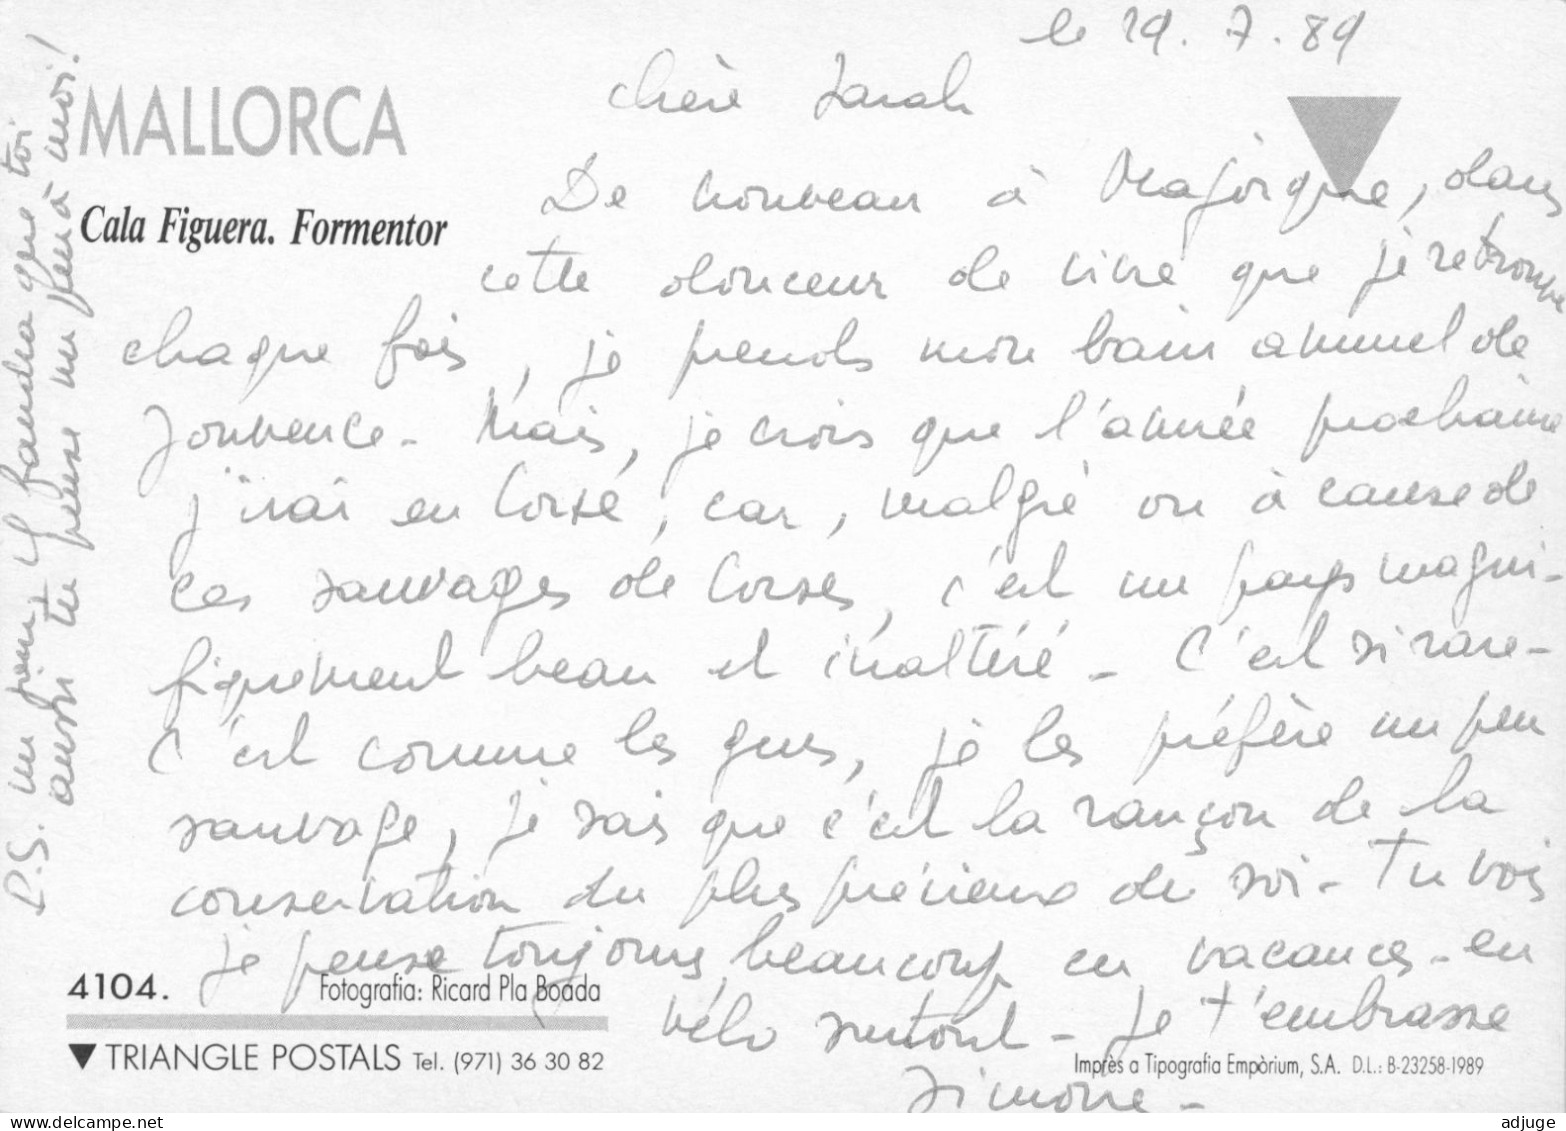 le 19.7.89
chère Sarah
MALLORCA
Cala Figuera. Formentor
De nouveau à Majorque, dans
cette douceur de vivre que je retrouve
chaque fois, je prends mon bain annuel de
Jouvence - Mais, je crois que l'année prochaine
j'irai en Corse, car, malgré ou à cause de
ces sauvages de Corses, c'est un pays magni-
fiquement beau et inaltéré - C'est si rare -
C'est comme les gens, je les préfère un peu
sauvage, je sais que c'est la rançon de la
conservation du plus précieux de soi - Tu vois
je pense toujours beaucoup en vacances - en
vélo surtout - Je t'embrasse
Simone -
P.S. un jour, il faudra que toi
aussi tu penses un peu à moi!
4104.
Fotografia: Ricard Pla Boada
TRIANGLE POSTALS Tel. (971) 36 30 82
Imprès a Tipografia Empòrium, S.A. D.L.: B-23258-1989
www.delcampe.net
adjuge